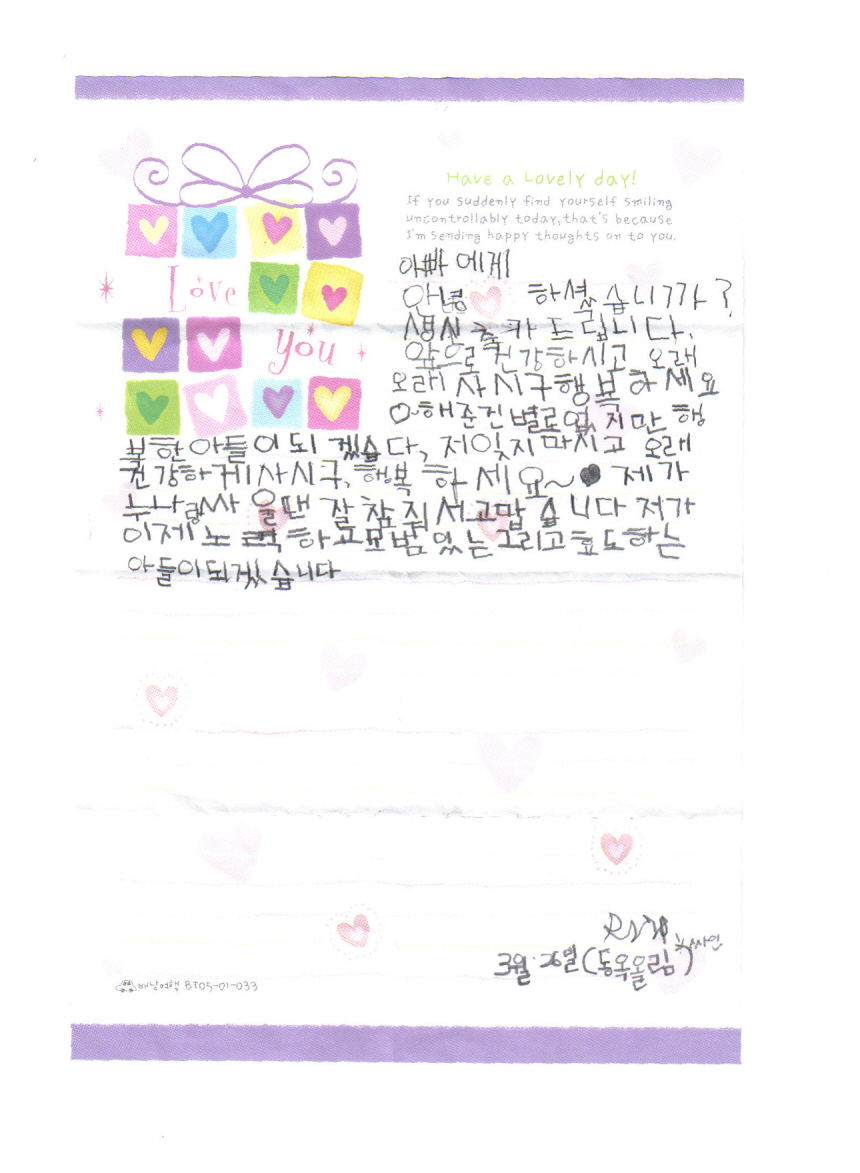 Have a Lovely day!
If you suddenly find yourself smiling
uncontrollably today, that's because
I'm sending happy thoughts on to you.
Love
you
아빠에게
아념 하셨습니까?
생신 축카드립니다.
앞으로 건강하시고 오래
오래 사시구 행복하세요
해준건 별로 없지만 행
복한 아들이 되겠습다, 저 잊지마시고 오래
건강하게 사시구, 행복 하세요~♥ 제가
누나랑 싸울땐 잘 참줘서 고맙습니다 저가
이제 노력하고 모범있는 그리고 효도하는
아들이 되겠습니다
싸인
3월·26일(동옥올림)
배낭여행 BT05-01-033